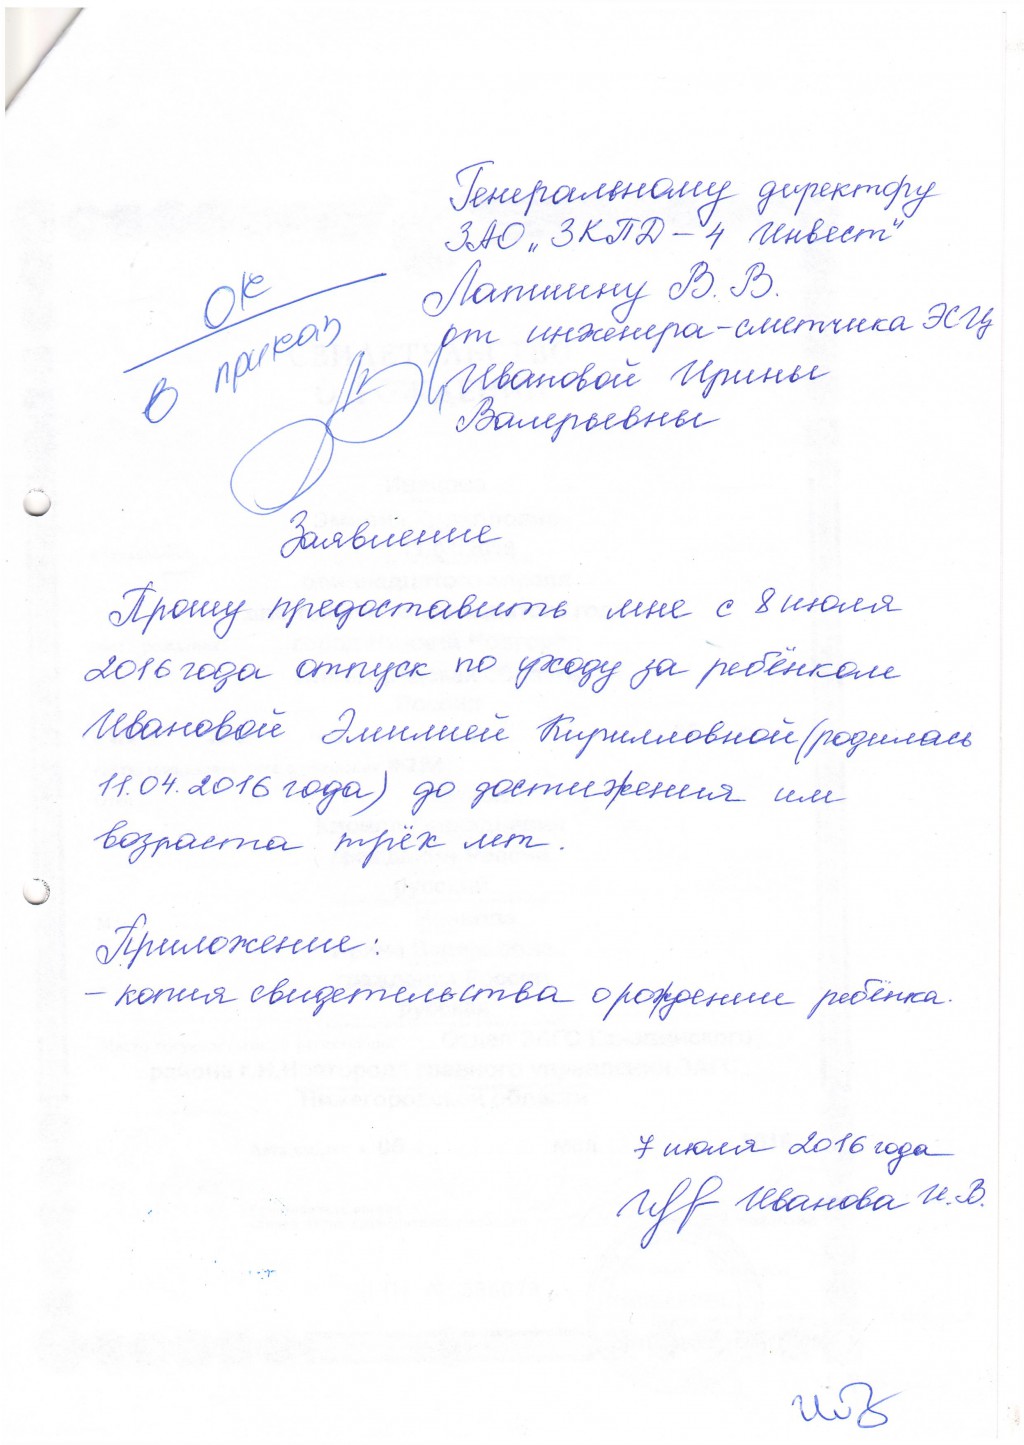 Генеральному директору
ЗАО „ЗКПД – 4 Инвест"
Лапшину В. В.
от инженера-сметчика ЭСГЦ
Ивановой Ирины
Валерьевны
ОК
в приказ
Заявление
Прошу предоставить мне с 8 июля
2016 года отпуск по уходу за ребёнком
Ивановой Эмилией Кирилловной (родилась
11.04.2016 года) до достижения им
возраста трёх лет.
Приложение:
– копия свидетельства о рождении ребёнка.
7 июля 2016 года
Иванова И. В.